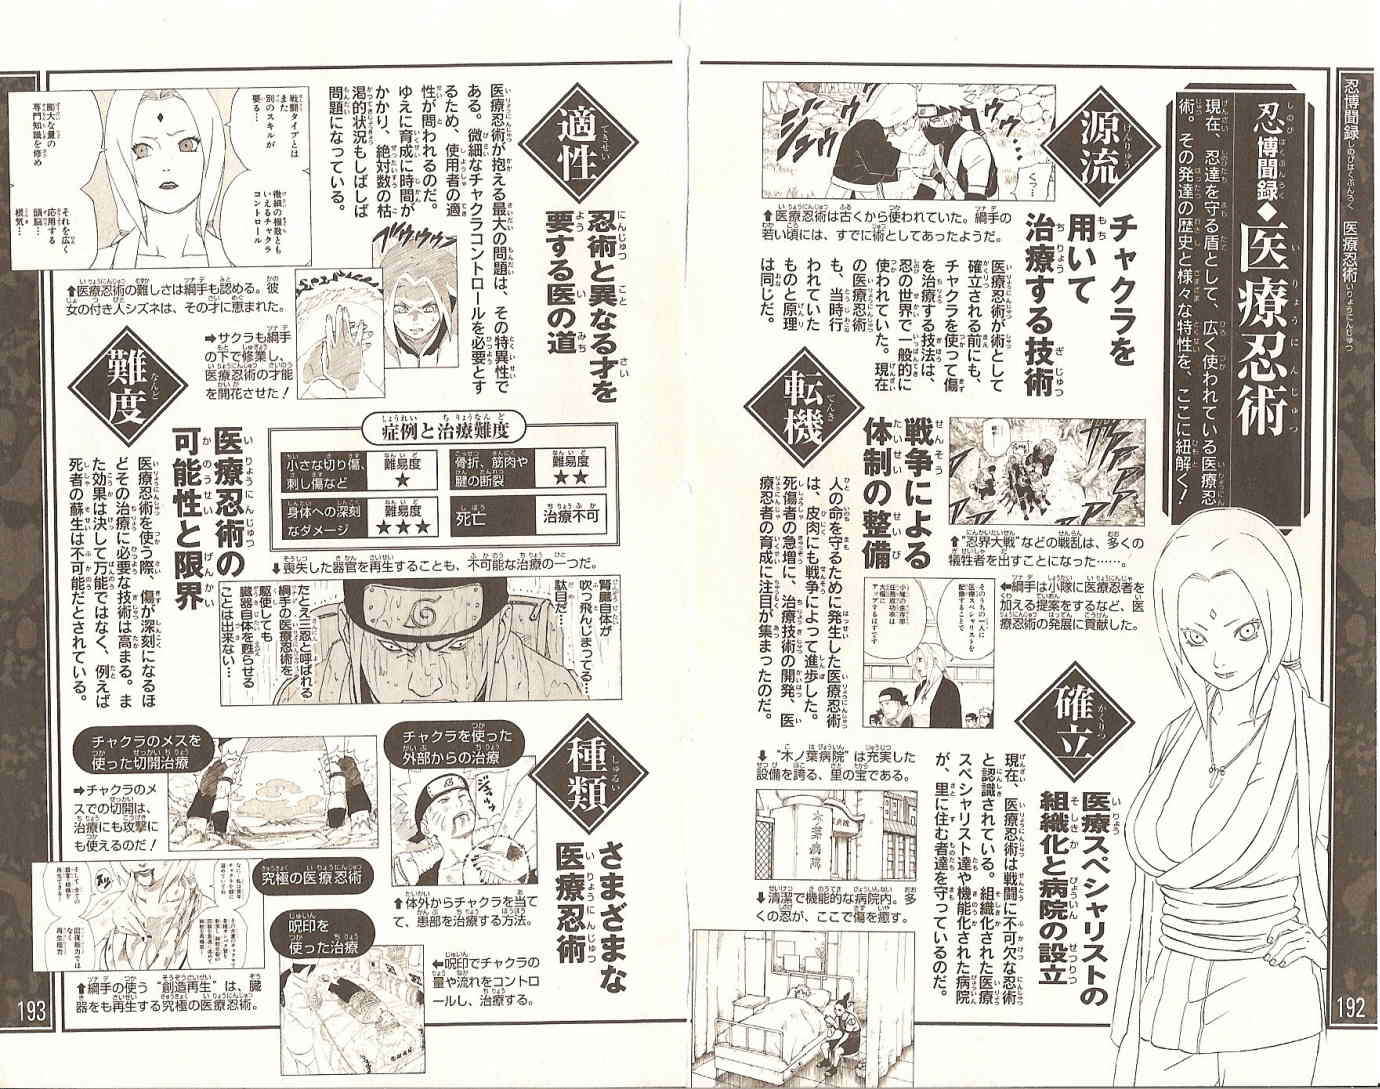 忍博聞録 しのびはくぶんろく 医療忍術 いりょうにんじゅつ
忍博聞録◆医療忍術
現在、忍達を守る盾として、広く使われている医療忍
術。その発達の歴史と様々な特性を、ここに紐解く！
源流
チャクラを
用いて
治療する技術
医療忍術が術として
確立される前にも、
チャクラを使って傷
を治療する技法は、
忍の世界で一般的に
使われていた。現在
の医療忍術
も、当時行
われていた
ものと原理
は同じだ。
くっ…
⬆医療忍術は古くから使われていた。綱手の
若い頃には、すでに術としてあったようだ。
転機
戦争による
体制の整備
人の命を守るために発生した医療忍術
は、皮肉にも戦争によって進歩した。
死傷者の急増に、治療技術の開発、医
療忍者の育成に注目が集まったのだ。
⬆“忍界大戦”などの戦乱は、多くの
犠牲者を出すことになった……。
⬅綱手は小隊に医療忍者を
加える提案をするなど、医
療忍術の発展に貢献した。
確立
医療スペシャリストの
組織化と病院の設立
現在、医療忍術は戦闘に不可欠な忍術
と認識されている。組織化された医療
スペシャリスト達や機能化された病院
が、里に住む者達を守っているのだ。
⬇“木ノ葉病院”は充実した
設備を誇る、里の宝である。
木葉病院
⬇清潔で機能的な病院内。多
くの忍が、ここで傷を癒す。
192
適性
忍術と異なる才を
要する医の道
医療忍術が抱える最大の問題は、その特異性で
ある。微細なチャクラコントロールを必要とす
るため、使用者の適
性が問われるのだ。
ゆえに育成に時間が
かかり、絶対数の枯
渇的状況もしばしば
問題になっている。
戦闘タイプとは
また
別のスキルが
要る…
繊細の極致とも
いえるチャクラ
コントロール
膨大な量の
専門知識を修め
それを広く
応用する
頭脳…
根気…
⬆医療忍術の難しさは綱手も認める。彼
女の付き人シズネは、その才に恵まれた。
➡サクラも綱手
の下で修業し、
医療忍術の才能
を開花させた！
難度
医療忍術の
可能性と限界
医療忍術を使う際、傷が深刻になるほ
どその治療に必要な技術は高まる。ま
た効果は決して万能ではなく、例えば
死者の蘇生は不可能だとされている。
症例と治療難度
小さな切り傷、
刺し傷など
難易度
★
骨折、筋肉や
腱の断裂
難易度
★★
身体への深刻
なダメージ
難易度
★★★
死亡
治療不可
⬇喪失した器官を再生することも、不可能な治療の一つだ。
腎臓自体が
吹っ飛んじまってる…
駄目だ…
たとえ三忍と呼ばれる
綱手の医療忍術を
駆使しても
臓器自体を甦らせる
ことは出来ない…
種類
さまざまな
医療忍術
チャクラを使った
外部からの治療
⬆体外からチャクラを当て
て、患部を治療する方法。
チャクラのメスを
使った切開治療
➡チャクラのメ
スでの切開は、
治療にも攻撃に
も使えるのだ！
究極の医療忍術
⬆綱手の使う“創造再生”は、臓
器をも再生する究極の医療忍術。
呪印を
使った治療
⬅呪印でチャクラの
量や流れをコントロ
ールし、治療する。
193